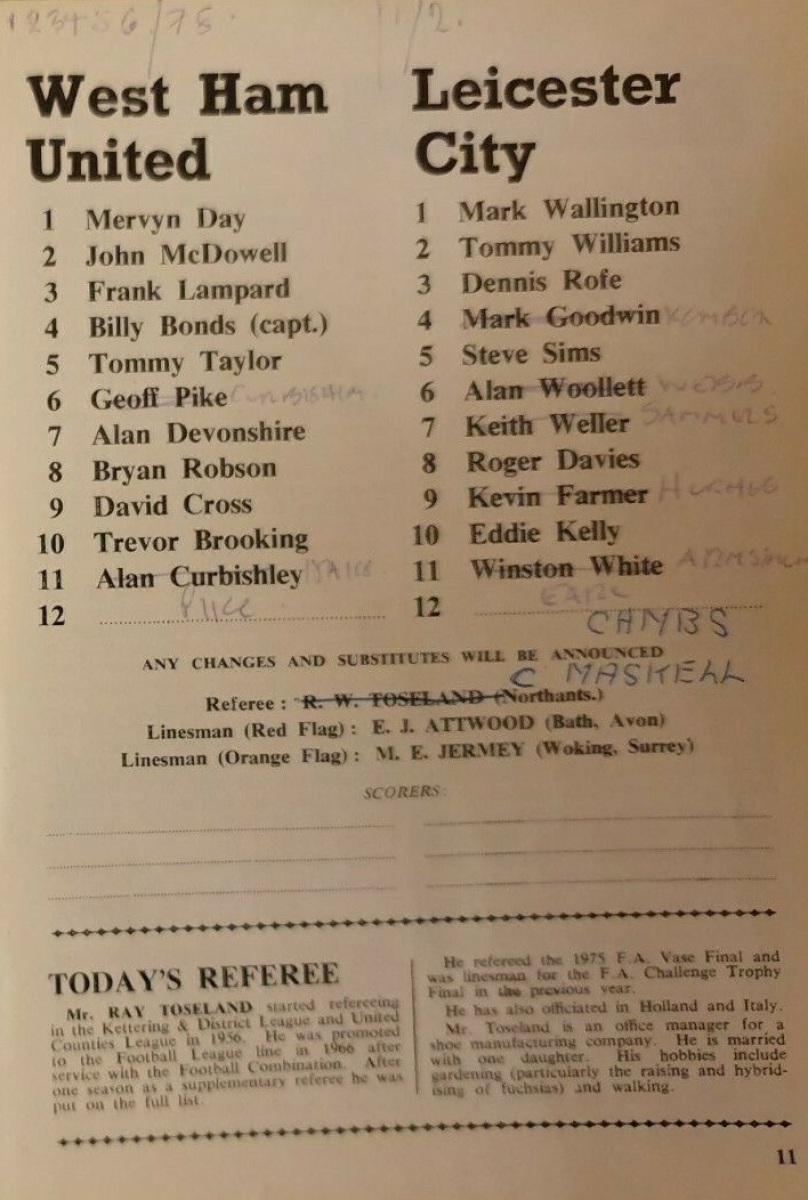 1 2 3 4 5 6 / 7 8 . 11/2.
West Ham
United
1 Mervyn Day
2 John McDowell
3 Frank Lampard
4 Billy Bonds (capt.)
5 Tommy Taylor
6 Geoff Pike CURBISHLEY
7 Alan Devonshire
8 Bryan Robson
9 David Cross
10 Trevor Brooking
11 Alan Curbishley
12
Leicester
City
1 Mark Wallington
2 Tommy Williams
3 Dennis Rofe
4 Mark Goodwin KEMBER
5 Steve Sims
6 Alan Woollett WEBB
7 Keith Weller SAMMELS
8 Roger Davies
9 Kevin Farmer HUGHES
10 Eddie Kelly
11 Winston White ARMSTRONG
12 EARL
CAMBS
ANY CHANGES AND SUBSTITUTES WILL BE ANNOUNCED
C MASKELL
Referee : R. W. TOSELAND (Northants.)
Linesman (Red Flag) : E. J. ATTWOOD (Bath, Avon)
Linesman (Orange Flag) : M. E. JERMEY (Woking, Surrey)
SCORERS:
TODAY'S REFEREE
Mr. RAY TOSELAND started refereeing
in the Kettering & District League and United
Counties League in 1956. He was promoted
to the Football League line in 1966 after
service with the Football Combination. After
one season as a supplementary referee he was
put on the full list.
He refereed the 1975 F.A. Vase Final and
was linesman for the F.A. Challenge Trophy
Final in the previous year.
He has also officiated in Holland and Italy.
Mr. Toseland is an office manager for a
shoe manufacturing company. He is married
with one daughter. His hobbies include
gardening (particularly the raising and hybrid-
ising of fuchsias) and walking.
11